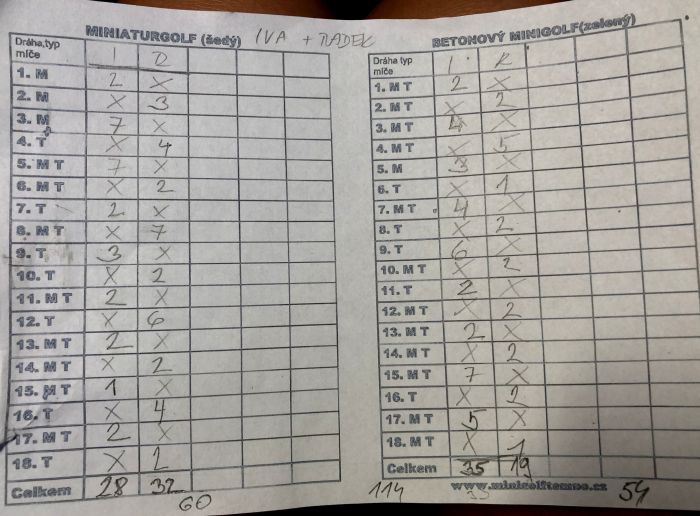 MINIATURGOLF (šedý) IVA + RADEK
Dráha,typ míče I R
1. M 2 X
2. M X 3
3. M 7 X
4. T X 4
5. M T 7 X
6. M T X 2
7. T 2 X
8. M T X 7
9. T 3 X
10. T X 2
11. M T 2 X
12. T X 6
13. M T 2 X
14. M T X 2
15. M T 1 X
16. T X 4
17. M T 2 X
18. T X 2
Celkem 28 32
60
BETONOVÝ MINIGOLF(zelený)
Dráha typ míče I R
1. M T 2 X
2. M T X 2
3. M T 4 X
4. M T X 5
5. M 3 X
6. T X 1
7. M T 4 X
8. T X 2
9. T 6 X
10. M T X 2
11. T 2 X
12. M T X 2
13. M T 2 X
14. M T X 2
15. M T 7 X
16. T X 2
17. M T 5 X
18. M T X 1
Celkem 35 19
114 www.minigolftempo.cz 54